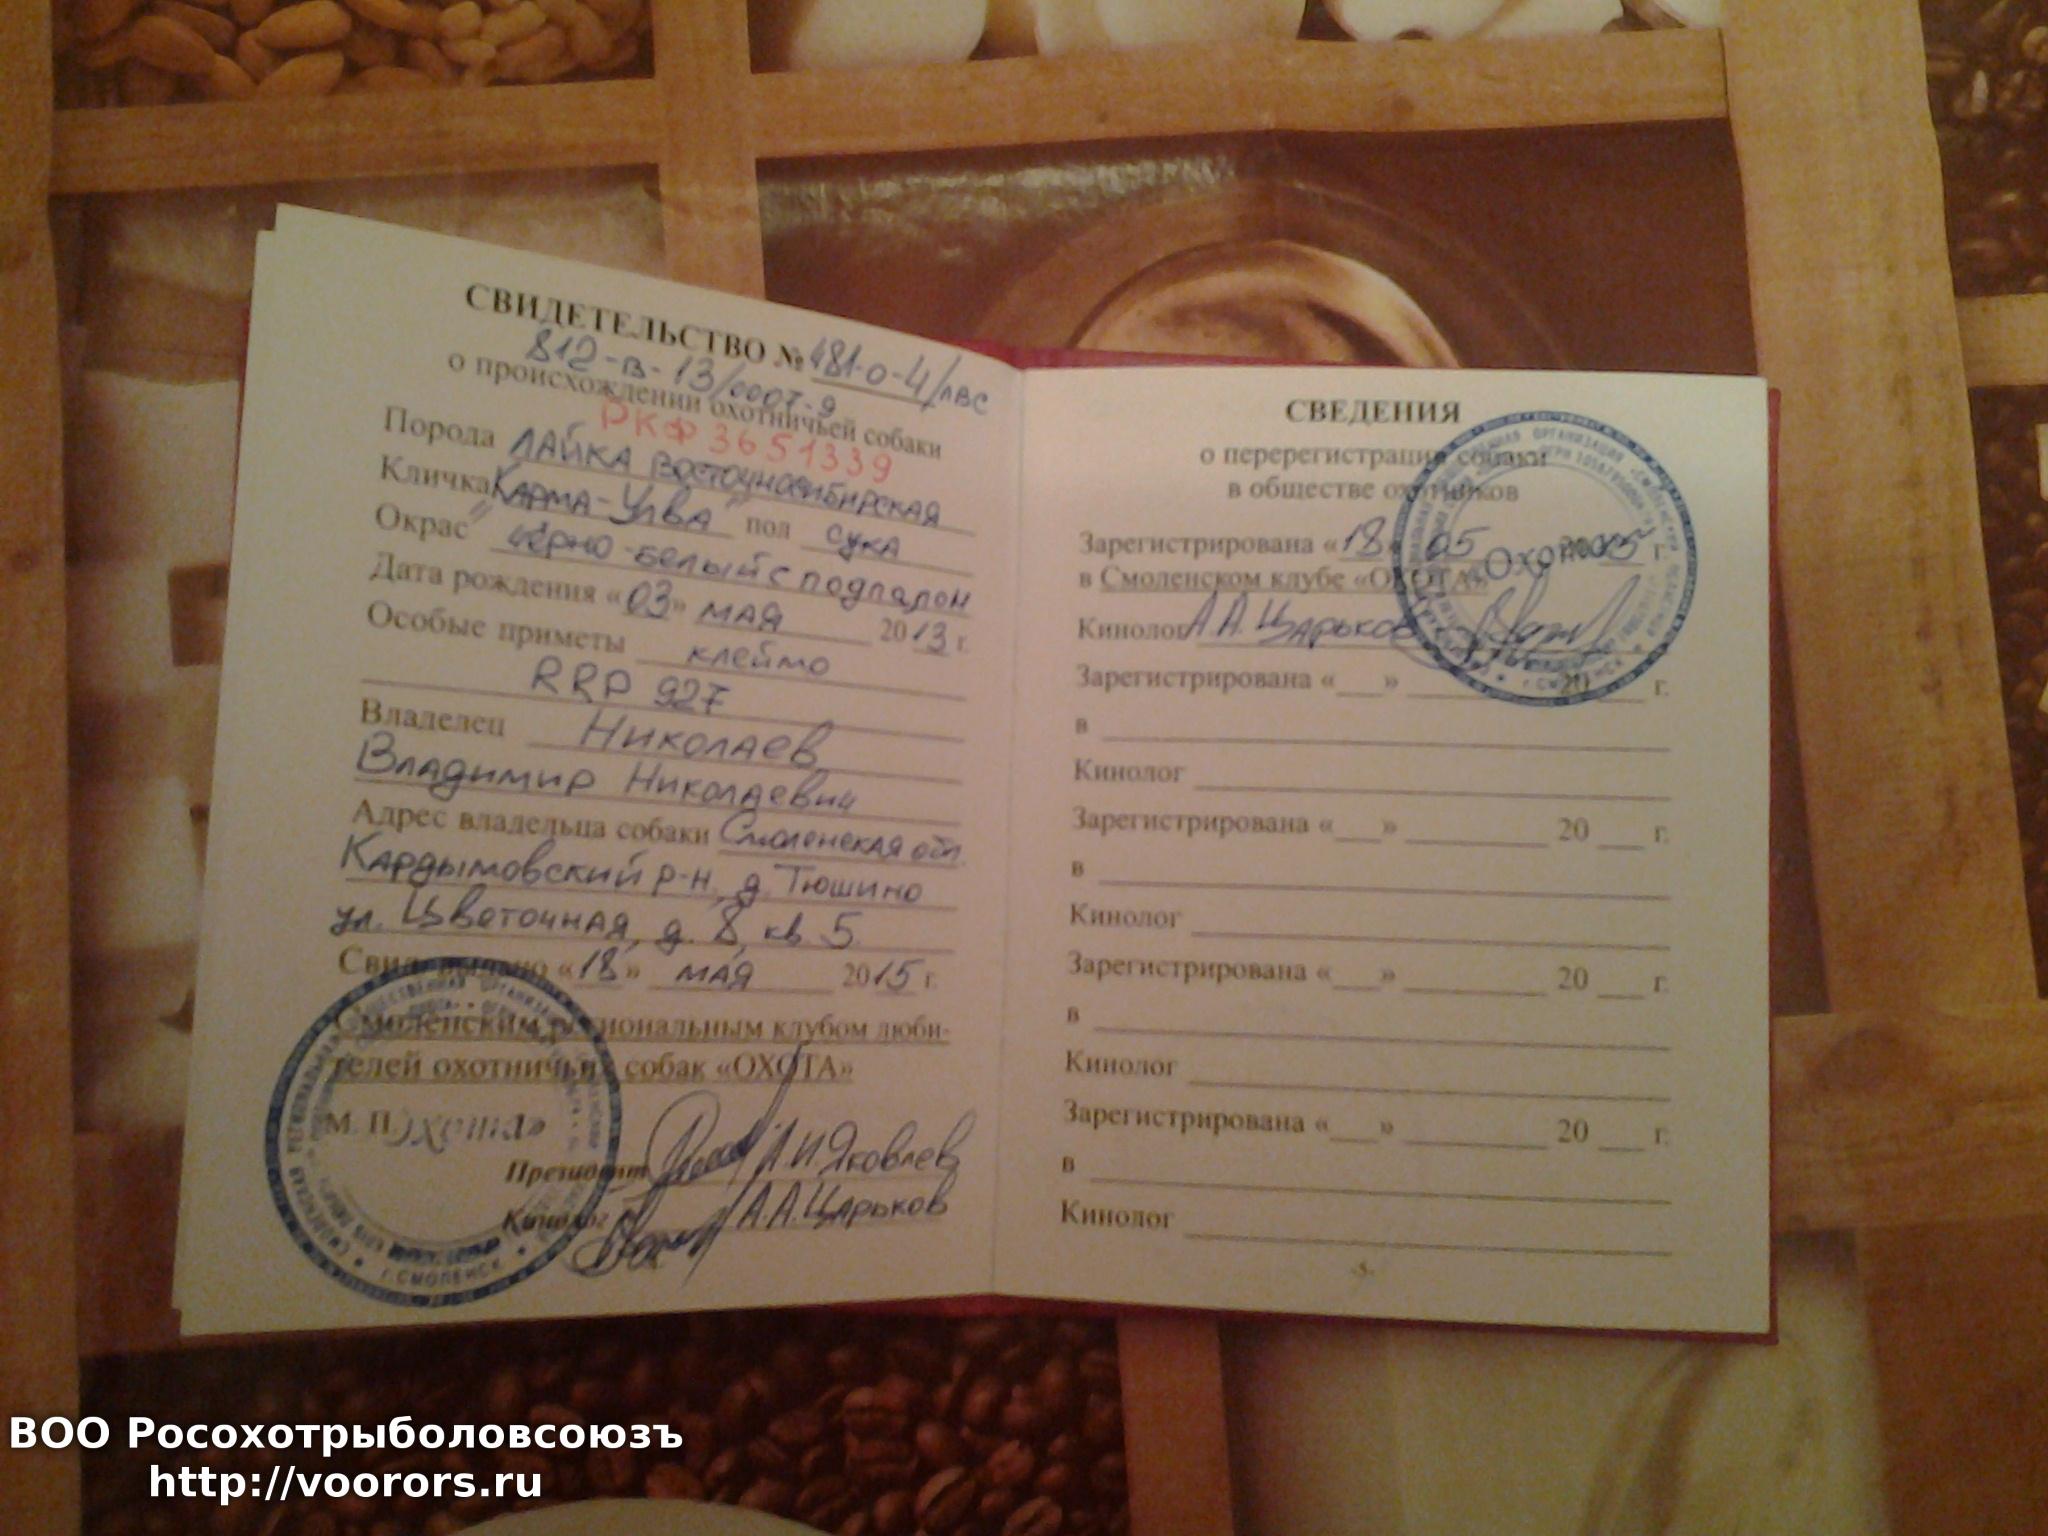 СВИДЕТЕЛЬСТВО № 481-о-4/лвс
812-в-13/0007-9
о происхождении охотничьей собаки
РКФ 3651339
Порода ЛАЙКА ВОСТОЧНОСИБИРСКАЯ
Кличка "Карма-Улва" пол сука
Окрас черно-белый с подпалом
Дата рождения «03» мая 2013 г.
Особые приметы клеймо
RRP 927
Владелец Николаев
Владимир Николаевич
Адрес владельца собаки Смоленская обл.
Кардымовский р-н, д. Тюшино
ул. Цветочная, д. 8, кв 5.
Свид. выдано «18» мая 2015 г.
Смоленским региональным клубом люби-
телей охотничьих собак «ОХОТА»
М. П. «Охота»
Президент Л.И. Яковлев
Кинолог А.А. Царьков
г. СМОЛЕНСК
СВЕДЕНИЯ
о перерегистрации собаки
в обществе охотников
Зарегистрирована «18» 05 2015 г.
«Охота»
в Смоленском клубе «ОХОТА»
Кинолог А.А. Царьков
Зарегистрирована «___» 20 г.
в
Кинолог
Зарегистрирована «___» 20 г.
в
Кинолог
Зарегистрирована «___» 20 г.
в
Кинолог
Зарегистрирована «___» 20 г.
в
Кинолог
-5-
ВОО Росохотрыболовсоюзъ
http://voorors.ru